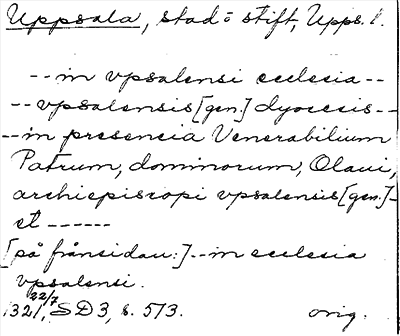 Uppsala, stad o stift, Upps. l.
-- in vpsalensi ecclesia --
-- vpsalensis [gen.] dyocesis --
-- in presencia Venerabilium
Patrum, dominorum, Olaui,
archiepiscopi vpsalensis [gen.] -
et ------
[på frånsidan:] -- in ecclesia
vpsalensi.
1321, 22/7, SD3, s. 513. orig.